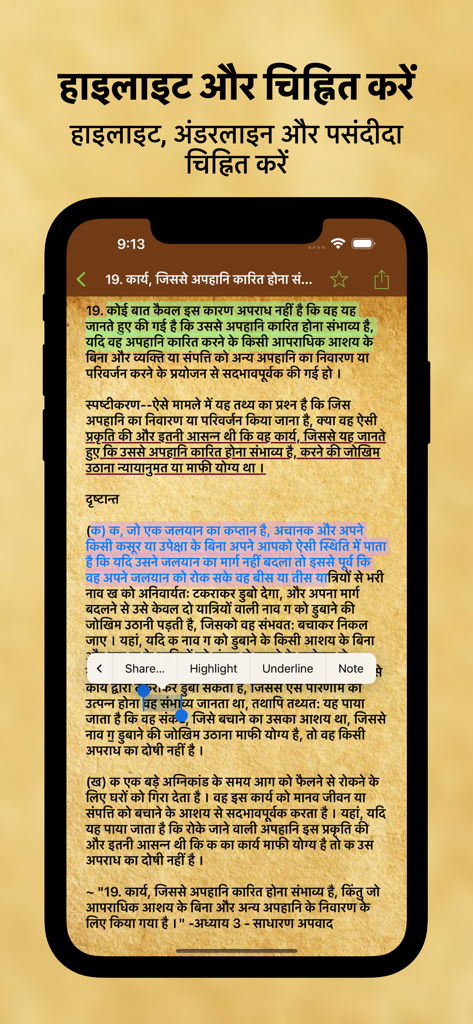 हाइलाइट और चिह्नित करें
हाइलाइट, अंडरलाइन और पसंदीदा
चिह्नित करें
9:13
19. कार्य, जिससे अपहानि कारित होना सं...
19. कोई बात केवल इस कारण अपराध नहीं है कि वह यह
जानते हुए की गई है कि उससे अपहानि कारित होना संभाव्य है,
यदि वह अपहानि कारित करने के किसी आपराधिक आशय के
बिना और व्यक्ति या संपत्ति को अन्य अपहानि का निवारण या
परिवर्जन करने के प्रयोजन से सदभावपूर्वक की गई हो ।
स्पष्टीकरण--ऐसे मामले में यह तथ्य का प्रश्न है कि जिस
अपहानि का निवारण या परिवर्जन किया जाना है, क्या वह ऐसी
प्रकृति की और इतनी आसन्न थी कि वह कार्य, जिससे यह जानते
हुए कि उससे अपहानि कारित होना संभाव्य है, करने की जोखिम
उठाना न्यायानुमत या माफी योग्य था ।
दृष्टान्त
(क) क, जो एक जलयान का कप्तान है, अचानक और अपने
किसी कसूर या उपेक्षा के बिना अपने आपको ऐसी स्थिति में पाता
है कि यदि उसने जलयान का मार्ग नहीं बदला तो इससे पूर्व कि
वह अपने जलयान को रोक सके वह बीस या तीस यात्रियों से भरी
नाव ख को अनिवार्यतः टकराकर डुबो देगा, और अपना मार्ग
बदलने से उसे केवल दो यात्रियों वाली नाव ग को डुबाने की
जोखिम उठानी पड़ती है, जिसको वह संभवतः बचाकर निकल
जाए । यहां, यदि क नाव ग को डुबाने के किसी आशय के बिना
Share... Highlight Underline Note
से
कार्य द्वारा टकराकर डुबा सकता है, जिससे ऐसे परिणाम का
उत्पन्न होना वह संभाव्य जानता था, तथापि तथ्यतः यह पाया
जाता है कि वह संकट, जिसे बचाने का उसका आशय था, जिससे
नाव ग डुबाने की जोखिम उठाना माफी योग्य है, तो वह किसी
अपराध का दोषी नहीं है ।
(ख) क एक बड़े अग्निकांड के समय आग को फैलने से रोकने के
लिए घरों को गिरा देता है । वह इस कार्य को मानव जीवन या
संपत्ति को बचाने के आशय से सदभावपूर्वक करता है । यहां, यदि
यह पाया जाता है कि रोके जाने वाली अपहानि इस प्रकृति की
और इतनी आसन्न थी कि क का कार्य माफी योग्य है तो क उस
अपराध का दोषी नहीं है ।
~ "19. कार्य, जिससे अपहानि कारित होना संभाव्य है, किंतु जो
आपराधिक आशय के बिना और अन्य अपहानि के निवारण के
लिए किया गया है ।" -अध्याय 3 - साधारण अपवाद